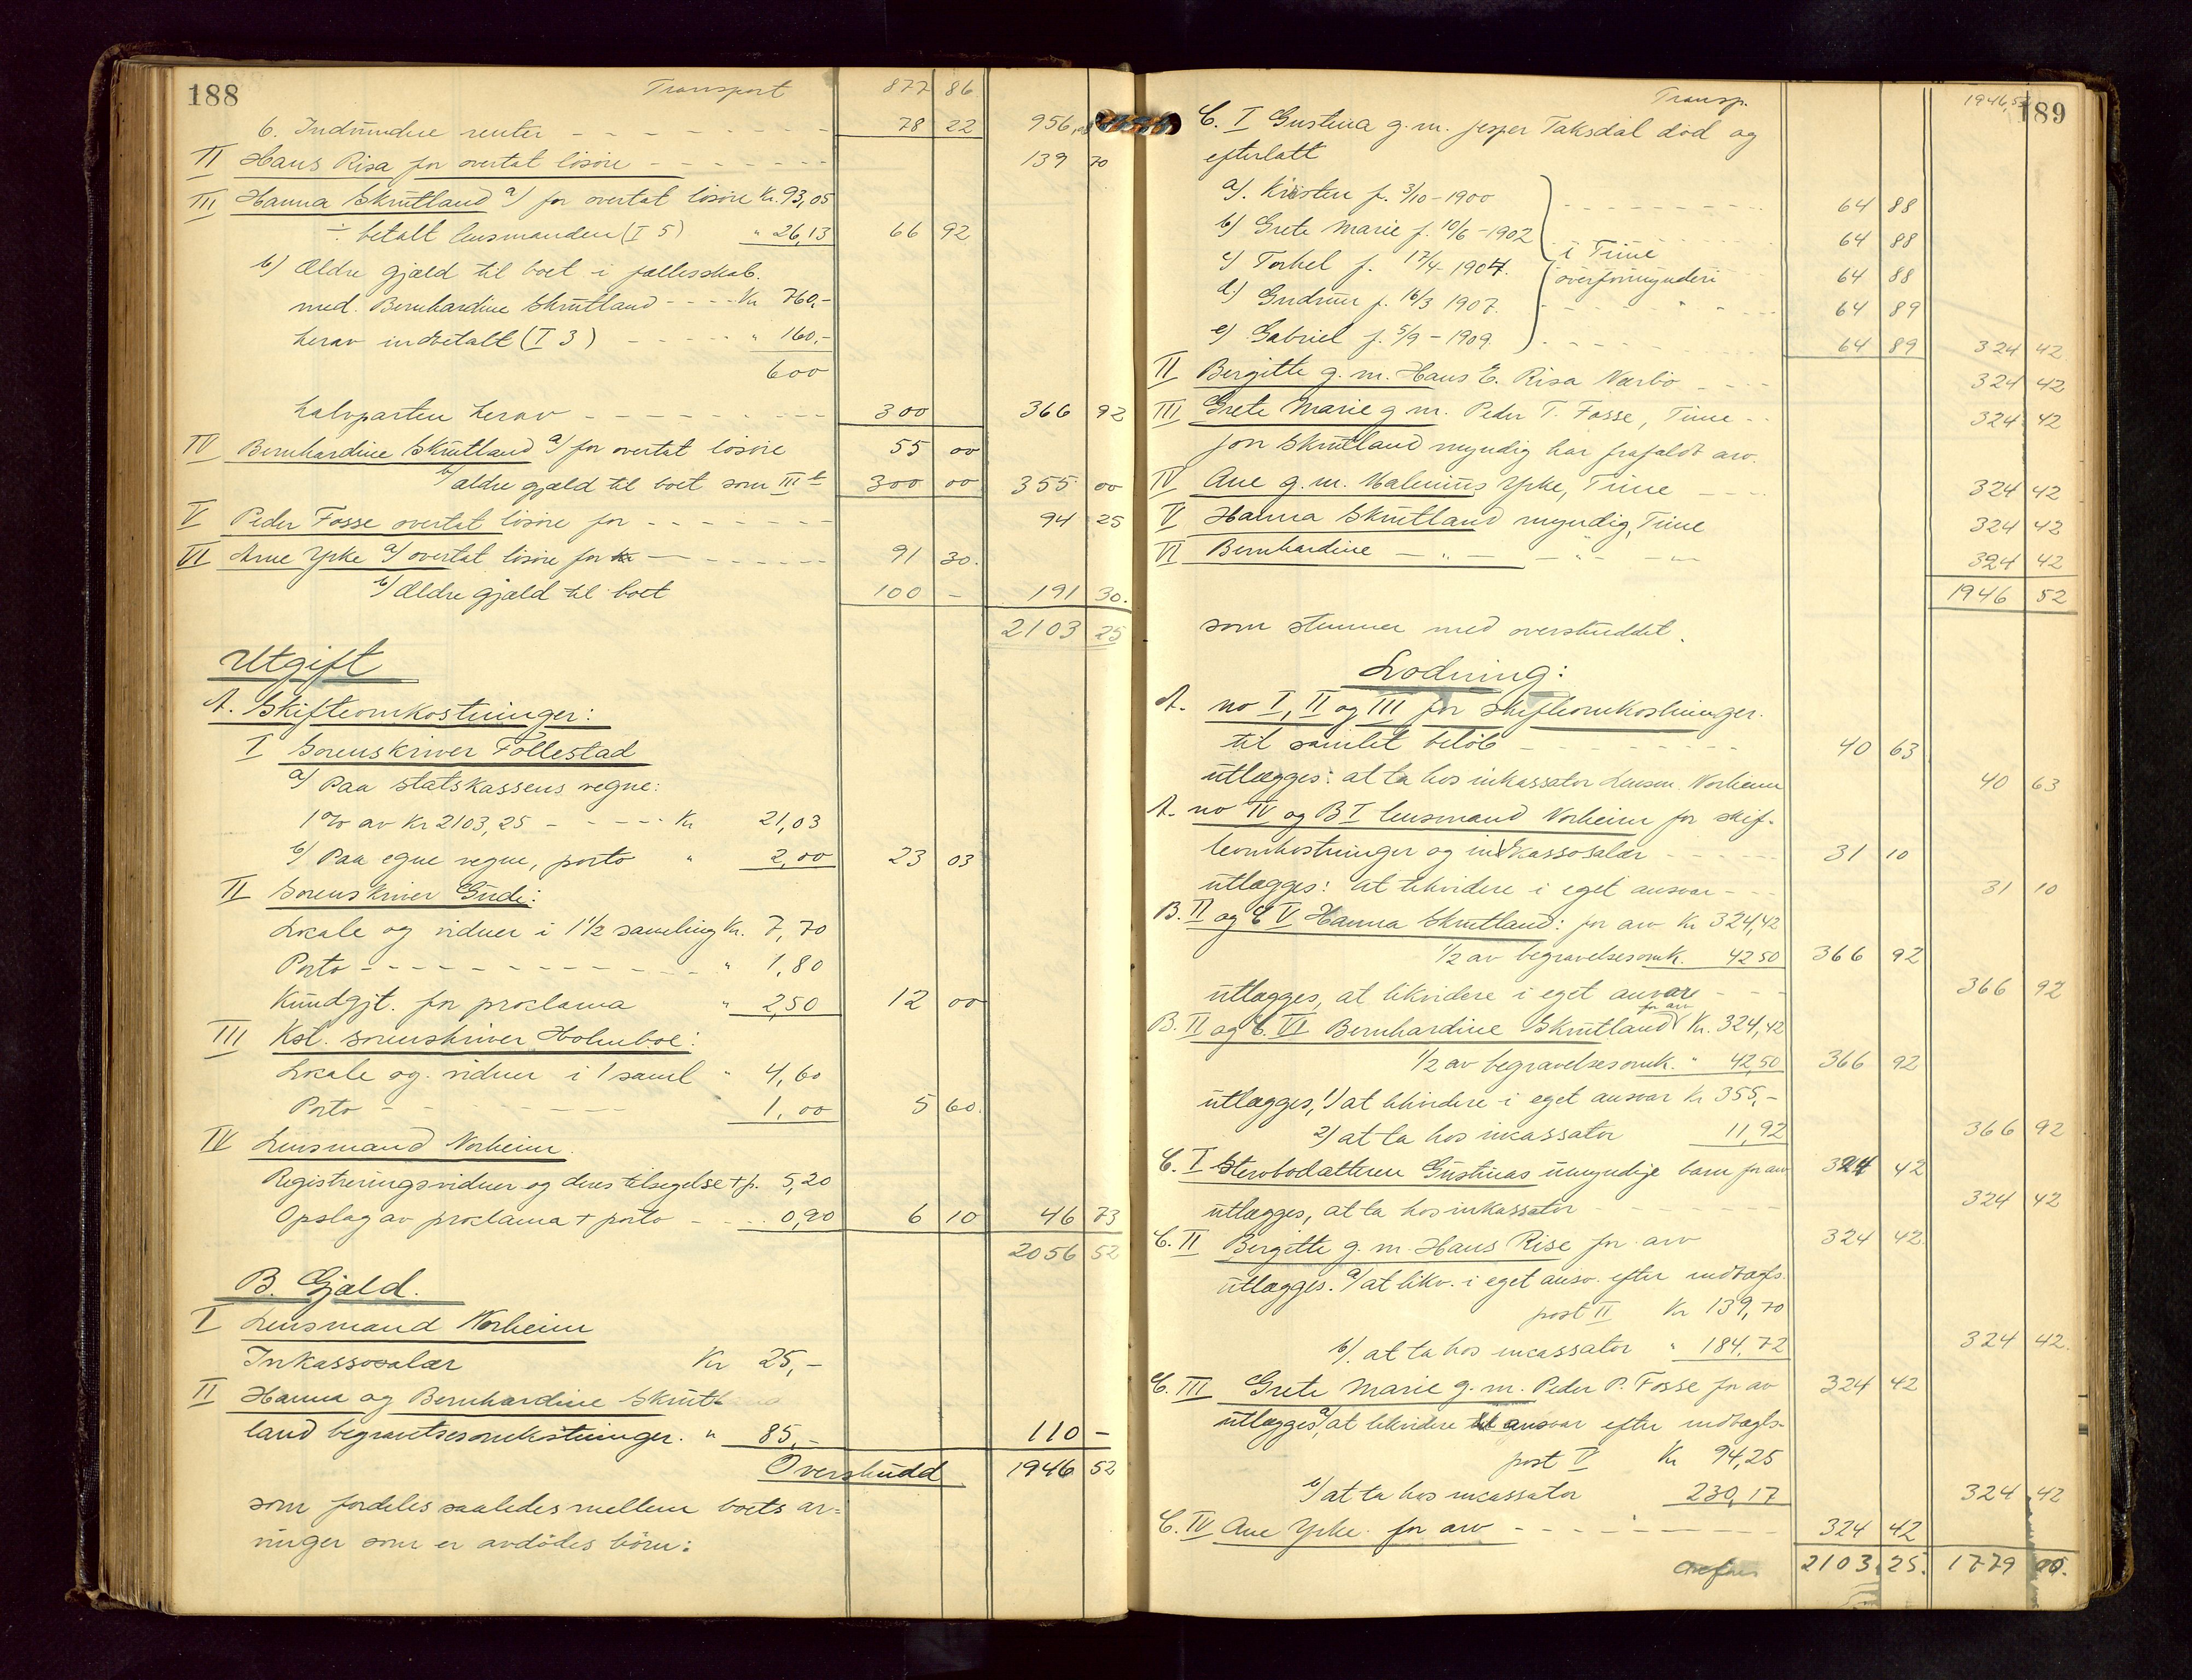 188
Transport 877 86
6. Indvundne renter 78 22 956,08
II Hans Risa for overtat løsøre 139 70
III Hanna Skrutland a/ for overtat løsøre Kr. 93,05
÷ betalt lensmanden (I 5) " 26,13 66 92
b/ Ældre gjæld til boet i fællesskab.
med. Bernhardine Skrutland Kr 760,-
herav indbetalt (I 3) " 160,-
600
halvparten herav 300 366 92
IV Bernhardine Skrutland a/ for overtat løsøre 55 00
b/ ældre gjæld til boet som III b 300 00 355 00
V Peder Fosse overtat løsøre for 94 25
VI Arne Ypke a/ overtat løsøre for 91 30.
b/ Ældre gjæld til boet 100 - 191 30.
2103 25
Utgift
A. Skifteomkostninger:
I Sorenskriver Follestad
a/ Paa statskassens vegne:
1 % av Kr 2103,25 Kr 21,03
b/ Paa egne vegne, porto " 2,00 23 03
II Sorenskriver Gude:
Lokale og vidner i 1 1/2 samling Kr. 7,70
Porto " 1,80
Kundgjt. for proclama " 2,50 12 00
III Kst. sorenskriver Holmboe:
Lokale og vidner i 1 saml " 4,60
Porto 1,00 5 60.
IV Lensmand Norheim.
Registreringsvidner og deres tilsigelse + p. 5,20
Opslag av proclama + porto 0,90 6 10 46 73
2056 52
B. Gjæld.
I Lensmand Norheim
Inkassosalær Kr 25,-
II Hanna og Bernhardine Skrut-
land begravelsesomkostninger. " 85,- 110 -
Overskudd 1946 52
som fordeles saaledes mellem boets ar-
vinger som er avdødes børn:
189
Transp. 1946,52
C. I Gustina g.m. Jesper Taksdal død og
efterlatt
a/. Kristen f. 3/10-1900 64 88
b/ Grete Marie f. 10/6-1902 64 88
i Time
c/ Torkel f. 17/4 1904. overformynderi 64 88
d.) Gudrun f. 16/3 1907. " " 64 89
e/ Gabriel f. 5/9-1909 64 89 324 42
II Bergitte g.m. Hans E. Risa Nærbø 324 42
III Grete Marie g m. Peder T. Fosse, Time 324 42
Jon Skrutland myndig har frafaldt arv.
IV Ane g.m. Malenius Ypke, Time 324 42
V Hanna Skrutland myndig, Time 324 42
VI Bernhardine - " - - " - - " - 324 42
1946 52
som stemmer med overskuddet.
Lodning:
A. no I, II og III for skifteomkostninger.
til samlet beløb 40 63
utlægges: at ta hos inkassator Lensm. Norheim 40 63
A. no IV og B I lensmand Norheim for skif-
teomkostninger og inkassosalær 31 10
utlægges: at likvidere i eget ansvar 31 10
B. II og C V Hanna Skrutland: for arv Kr 324,42
1/2 av begravelsesomk. 42 50 366 92
utlægges, at likvidere i eget ansvar 366 92
B. II og C. VI Bernhardine Skrutland for arv Kr. 324,42
1/2 av begravelsesomk. " 42,50 366 92
utlægges, 1/ at likvidere i eget ansvar Kr 355,-
2/ at ta hos incassator 11,92 366 92
C. I Stervbodatteren Gustinas umyndige barn for arv 324 42
utlægges, at ta hos inkassator 324 42
C. II Bergitte g.m. Hans Rise for arv 324 42.
utlægges. a/ at likv. i eget ansv. efter indtægts.
post II Kr 139,70
b/. at ta hos incassator " 184,72 324 42.
C. III Grete Marie g.m. Peder P. Fosse for av 324 42
utlægges, a/ at likvidere ansvar efter indtægts-
post V Kr 94,25
b/ at ta hos incassator 230,17 324 42
C. IV Ane Ypke for arv 324 42
2103 25. 1779 00.